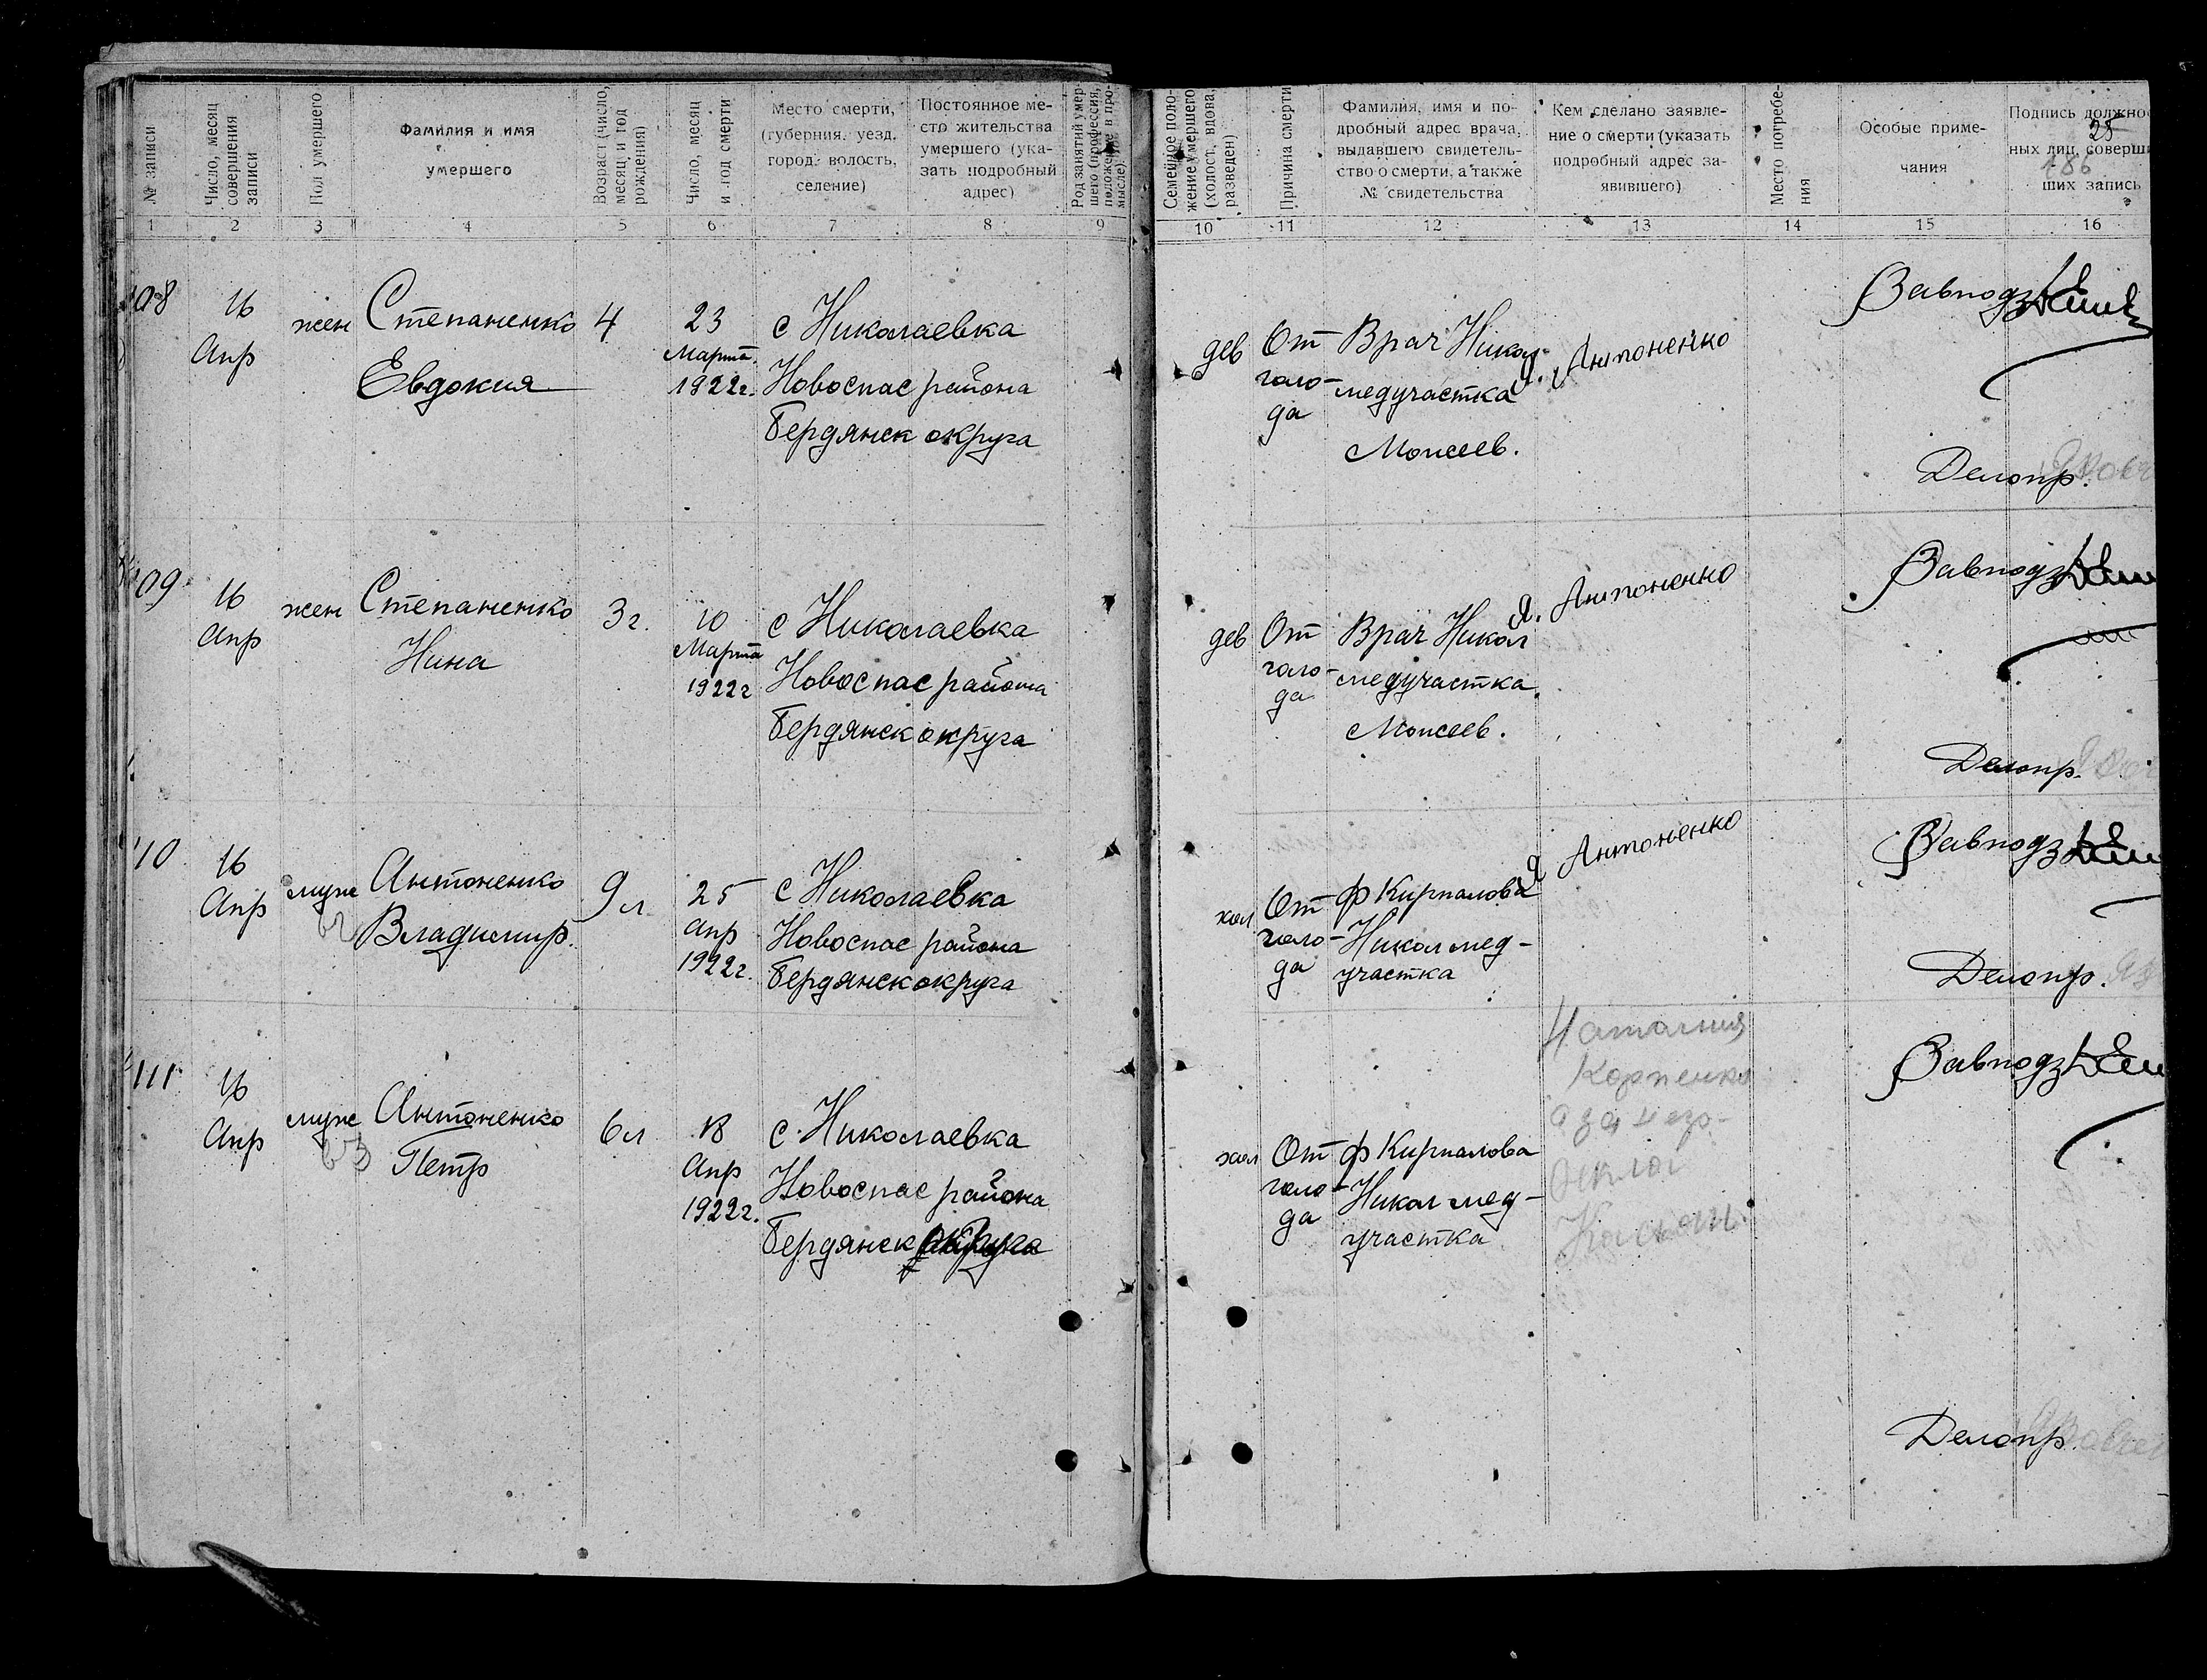 № записи
Число, месяц
совершения
записи
Пол умершего
Фамилия и имя
умершего
Возраст (число,
месяц и год
рождения)
Число, месяц
и год смерти
Место смерти,
(губерния, уезд,
город, волость,
селение)
Постоянное ме-
сто жительства
умершего (ука-
зать подробный
адрес)
Род занятий умер-
шего (профессия,
положение в про-
мысле)
Семейное поло-
жение умершего
(холост, вдова,
разведен)
Причина смерти
Фамилия, имя и по-
дробный адрес врача,
выдавшего свидетель-
ство о смерти, а также
№ свидетельства
Кем сделано заявле-
ние о смерти (указать
подробный адрес за-
явившего)
Место погребе-
ния
Особые приме-
чания
Подпись должно
25
ных лиц, соверши
186
ших запись
1 2 3 4 5 6 7 8 9 10 11 12 13 14 15 16
08
16
Апр
жен
Степаненко
Евдокия
4
23
Марта
1922г.
с Николаевка
Новоспас района
Бердянск округа
дев
От
голо-
да
Врач Никол
медучастка
Моисеев.
Я. Антоненко
Завподз
Делопр.
09
16
Апр
жен
Степаненко
Нина
3г.
10
Марта
1922г
с Николаевка
Новоспас района
Бердянск округа
дев
От
голо-
да
Врач Никол
медучастка
Моисеев.
Я. Антоненко
Завподз
Делопр.
10
16
Апр
муж
Антоненко
Владимир.
9л
25
Апр
1922г.
с Николаевка
Новоспас района
Бердянск округа
хол
От
голо-
да
ф Кирпалова
Никол мед-
участка
Я Антоненко
Завподз
Делопр.
111
16
Апр
муж
Антоненко
Петр
6л
18
Апр
1922г.
с. Николаевка
Новоспас района
Бердянск округа
хол
От
голо-
да
ф Кирпалова
Никол мед-
участка
Наталия
Завподз
Делопр.